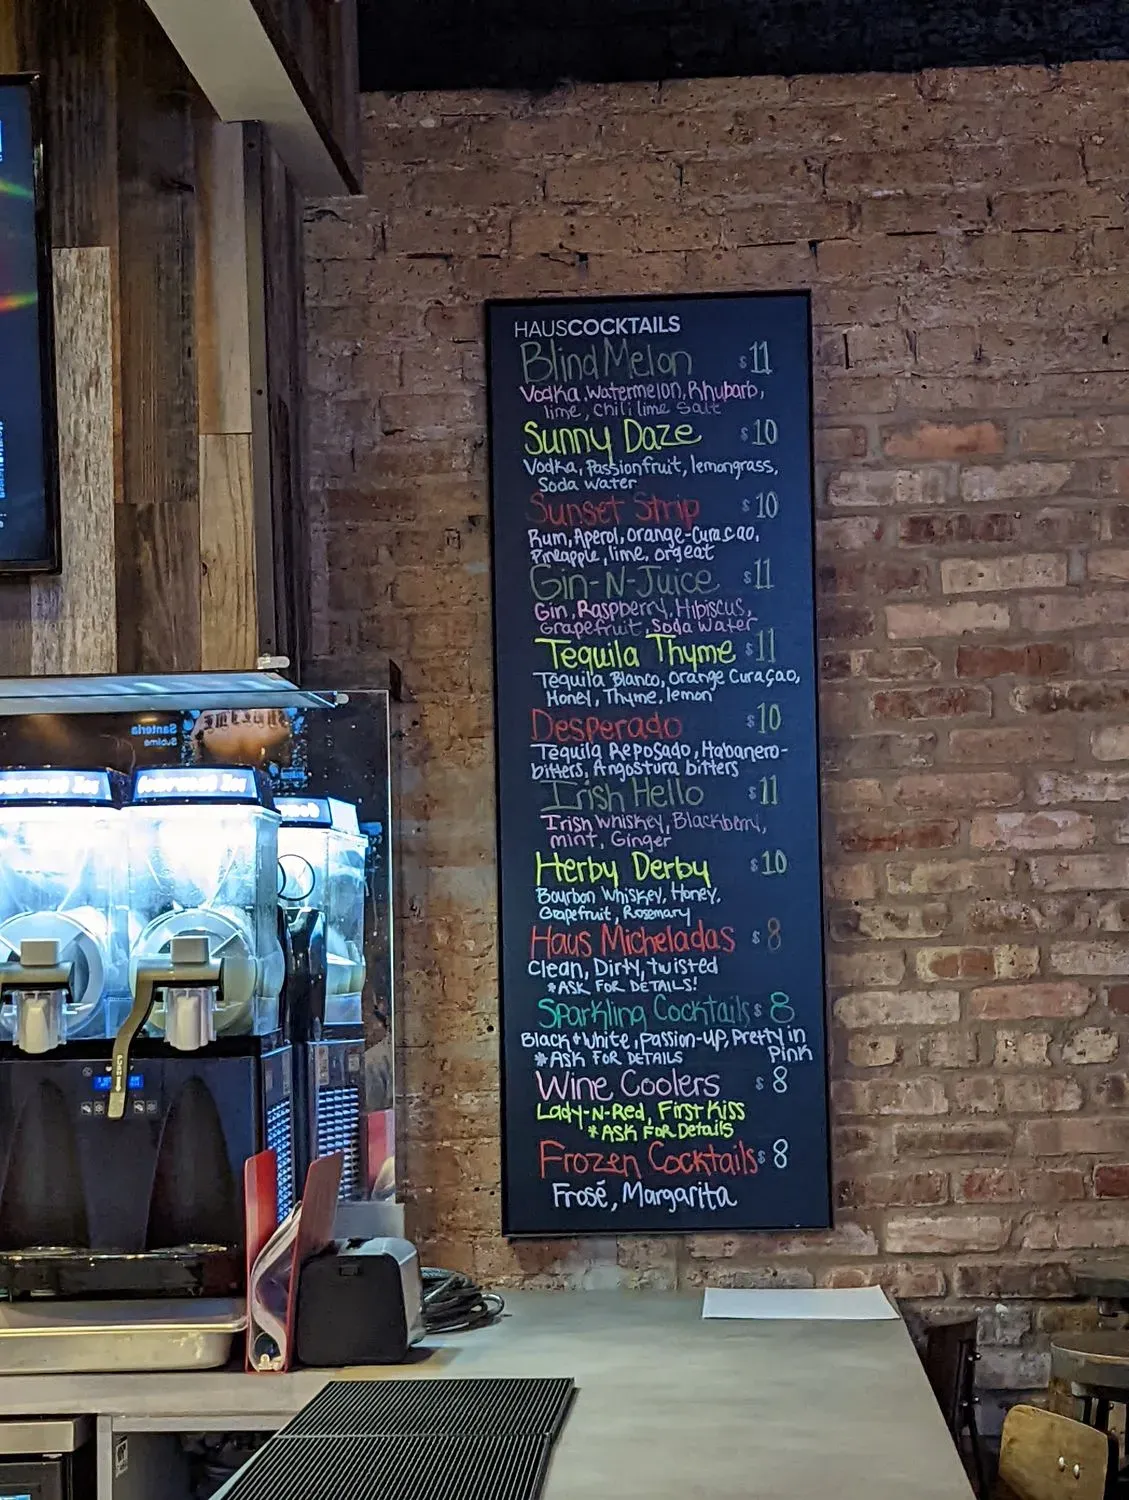 HAUSCOCKTAILS
Blind Melon $11
Vodka, Watermelon, Rhubarb,
lime, chili lime Salt
Sunny Daze $10
Vodka, Passionfruit, lemongrass,
Soda Water
Sunset Strip $10
Rum, Aperol, orange-Curaçao,
Pineapple, lime, orgeat
Gin-N-Juice $11
Gin, Raspberry, Hibiscus,
Grapefruit, Soda Water
Tequila Thyme $11
Tequila Blanco, Orange Curaçao,
Honey, Thyme, lemon
Desperado $10
Tequila Reposado, Habanero-
bitters, Angostura bitters
Irish Hello $11
Irish Whiskey, Blackberry,
mint, Ginger
Herby Derby $10
Bourbon Whiskey, Honey,
Grapefruit, Rosemary
Haus Micheladas $8
Clean, Dirty, twisted
*ASK FOR DETAILS!
Sparkling Cocktails $8
Black + White, Passion-up, Pretty in
*ASK FOR DETAILS Pink
Wine Coolers $8
Lady-N-Red, First Kiss
*ASK FOR Details
Frozen Cocktails $8
Frosé, Margarita
Santeria
Sublime